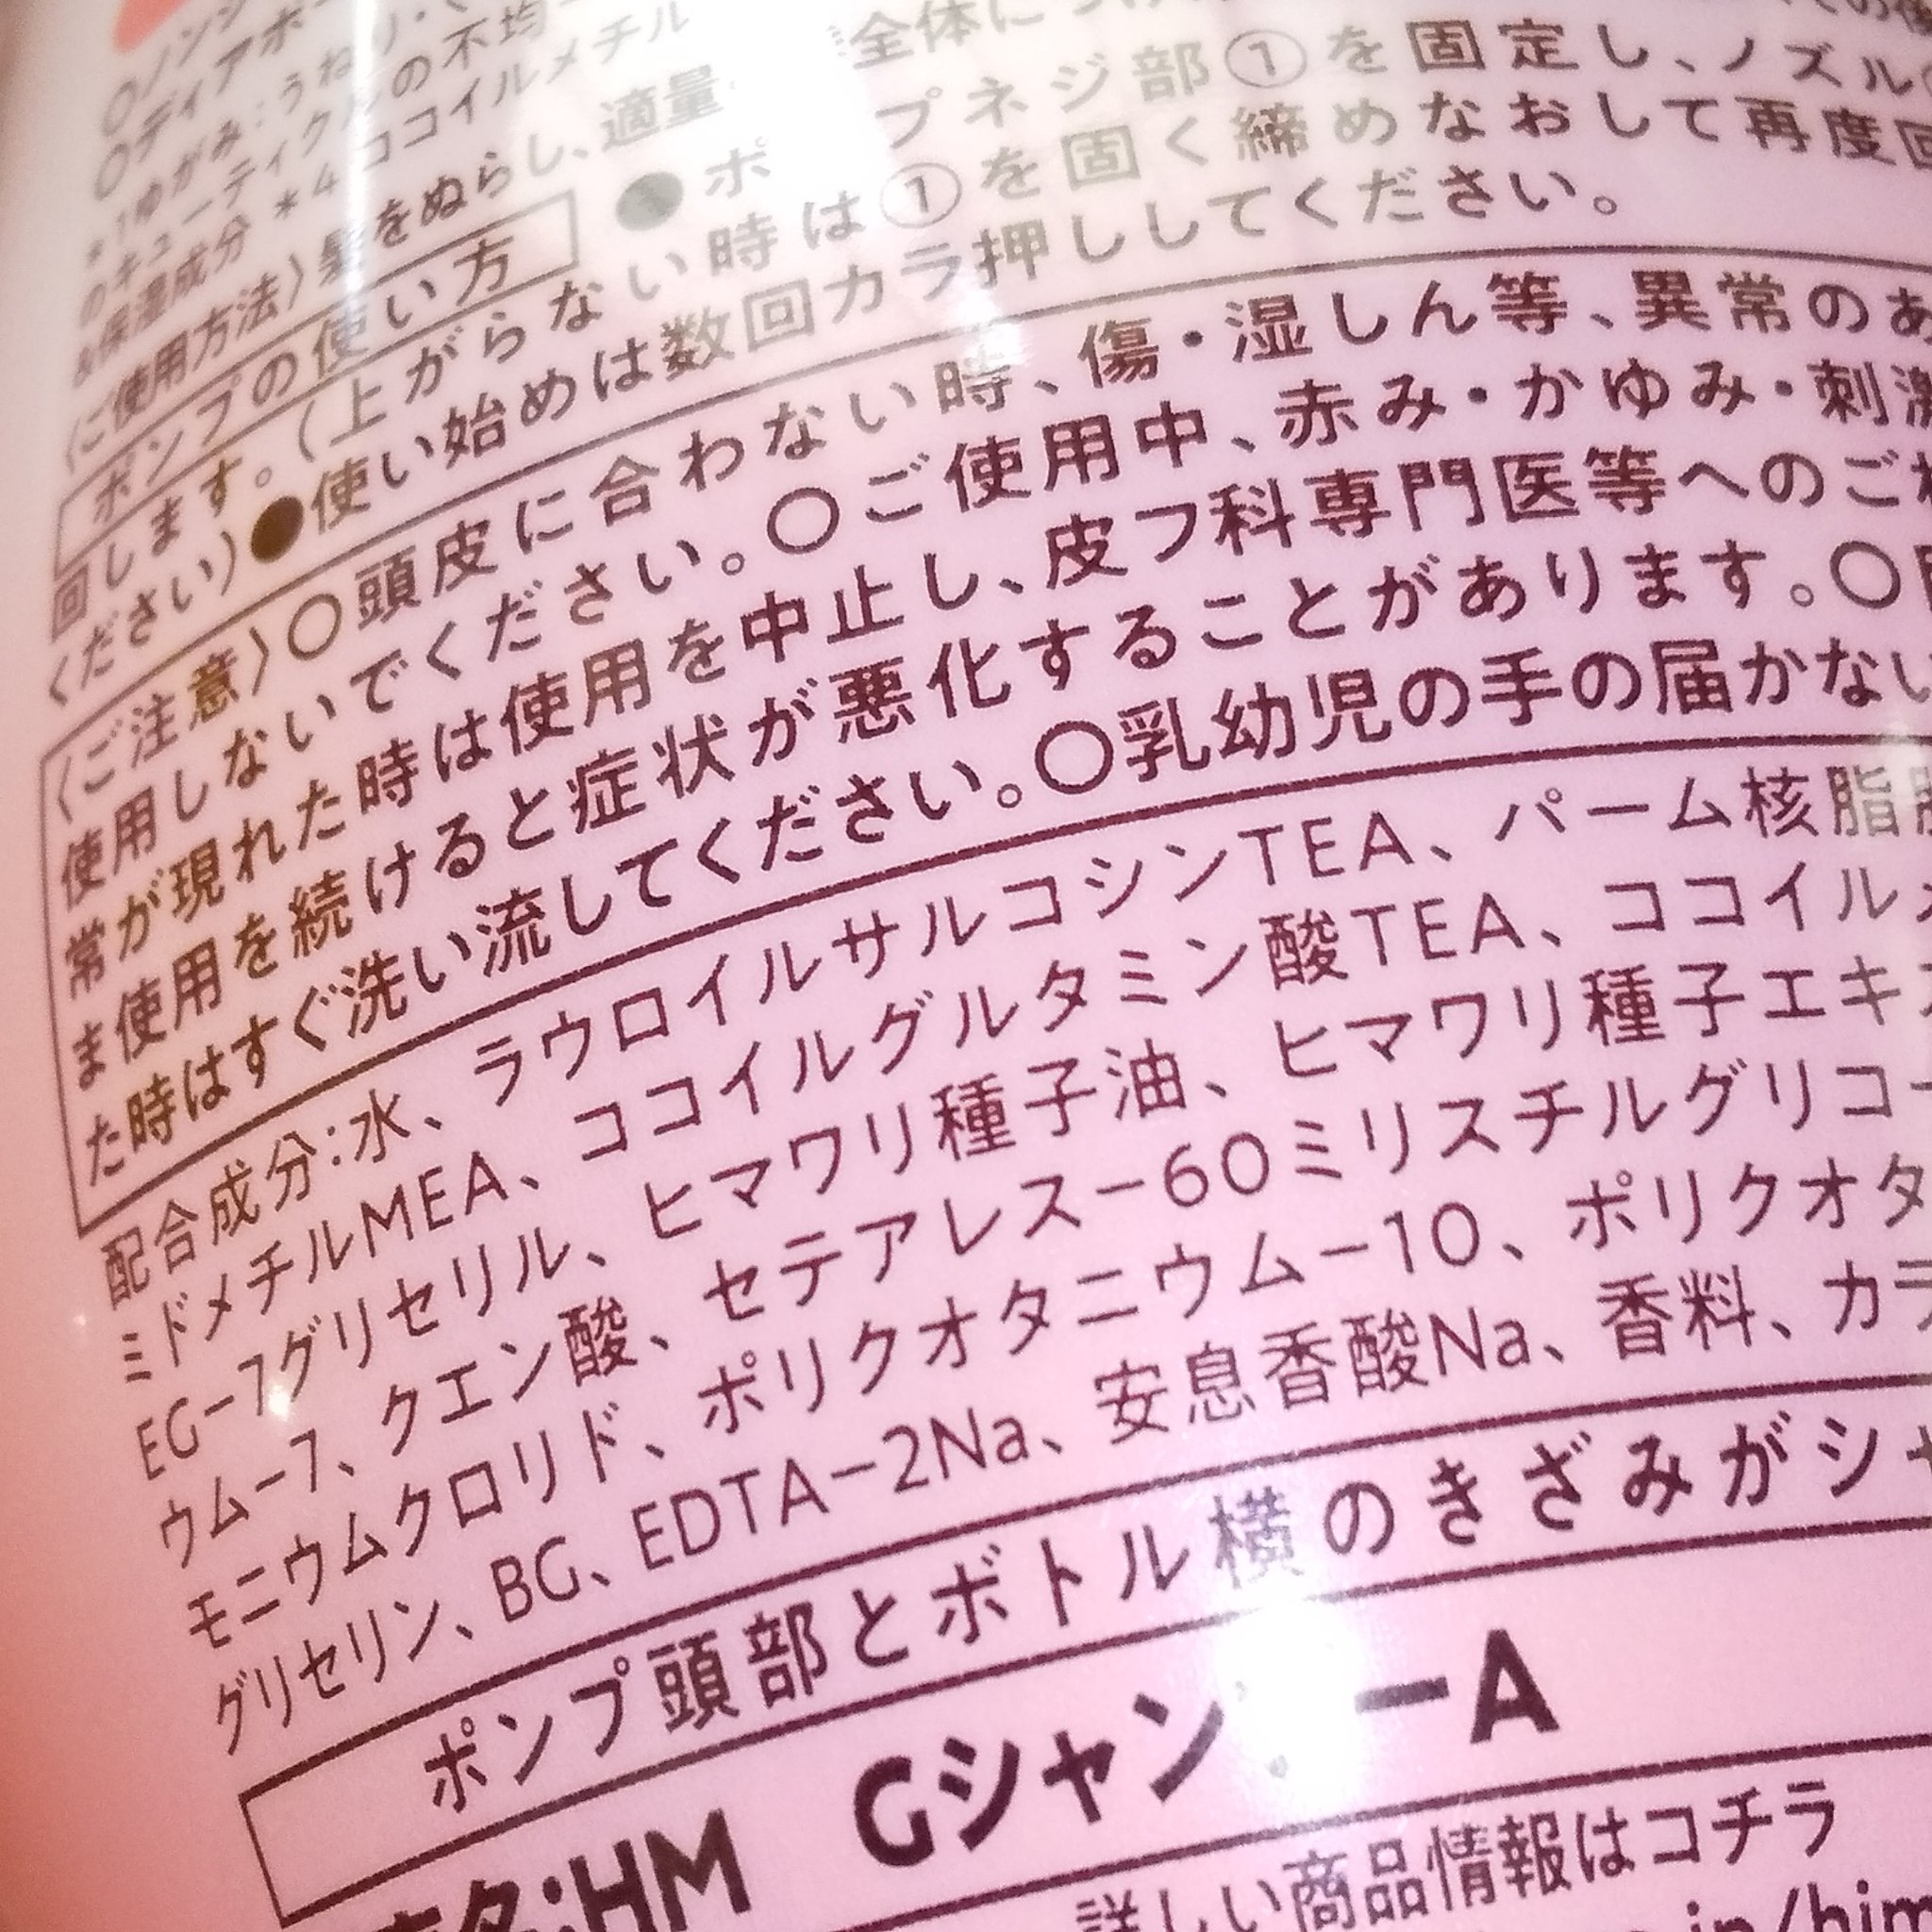 〇ノンシ
〇ディアボー
*1ゆがみ：うねり・
のキューティクルの不均一
&保湿成分 *4 ココイルメチル
〈ご使用方法〉髪をぬらし、適量 全体に
ポンプの使い方 ●ポ プネジ部①を固定し、ノズル
回します。（上がらない時は①を固く締めなおして再度回
ください）●使い始めは数回カラ押ししてください。
〈ご注意〉〇頭皮に合わない時、傷・湿しん等、異常のあ
使用しないでください。〇ご使用中、赤み・かゆみ・刺激
常が現れた時は使用を中止し、皮フ科専門医等へのご
ま使用を続けると症状が悪化することがあります。〇
た時はすぐ洗い流してください。〇乳幼児の手の届かない
配合成分：水、ラウロイルサルコシンTEA、パーム核脂
ミドメチルMEA、ココイルグルタミン酸TEA、ココイル
EG-7グリセリル、ヒマワリ種子油、ヒマワリ種子エキ
ウム-7、クエン酸、セテアレス-60ミリスチルグリコー
モニウムクロリド、ポリクオタニウム-10、ポリクオタ
グリセリン、BG、EDTA-2Na、安息香酸Na、香料、カラ
ポンプ頭部とボトル横のきざみがシャ
名：HM Gシャン ーA
詳しい商品情報はコチラ
/him